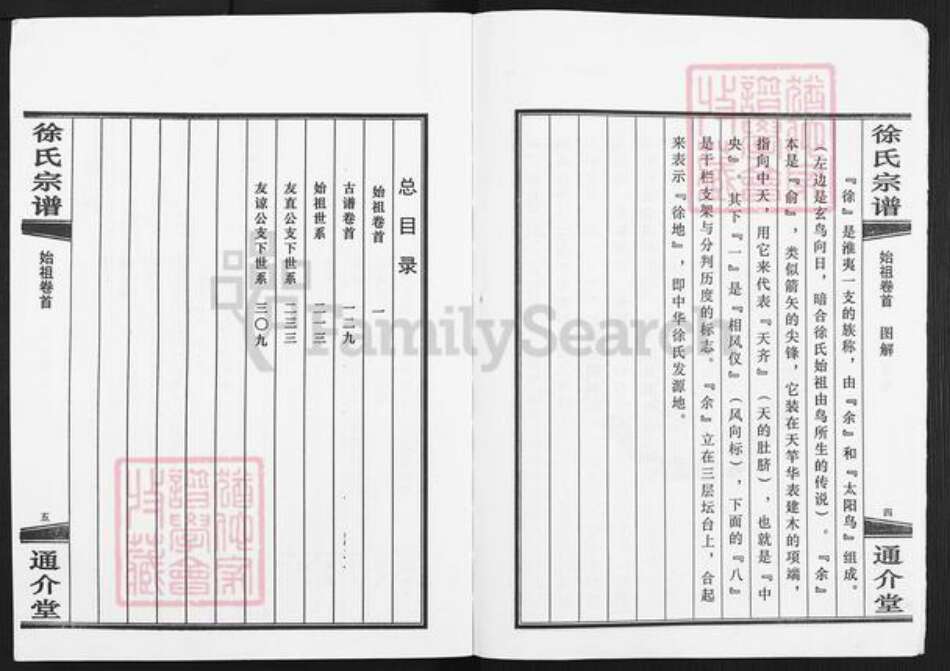 徐氏宗谱
始祖卷首 图解
四
通介堂
『徐』是淮夷一支的族称，由『余』和『太阳鸟』组成。
（左边是玄鸟向日，暗合徐氏始祖由鸟所生的传说）。『余』
本是『俞』，类似箭矢的尖锋，它装在天竿华表建木的项端，
指向中天，用它来代表『天齐』（天的肚脐），也就是『中
央』。其下『一』是『相风仪』（风向标），下面的『八』
是干栏支架与分判历度的标志。『余』立在三层坛台上，合起
来表示『徐地』，即中华徐氏发源地。
总目录
始祖卷首 一
古谱卷首 一二九
始祖世系 二一三
友直公支下世系 二三三
友谅公支下世系 三〇九
徐氏宗谱
始祖卷首
五
通介堂
FamilySearch